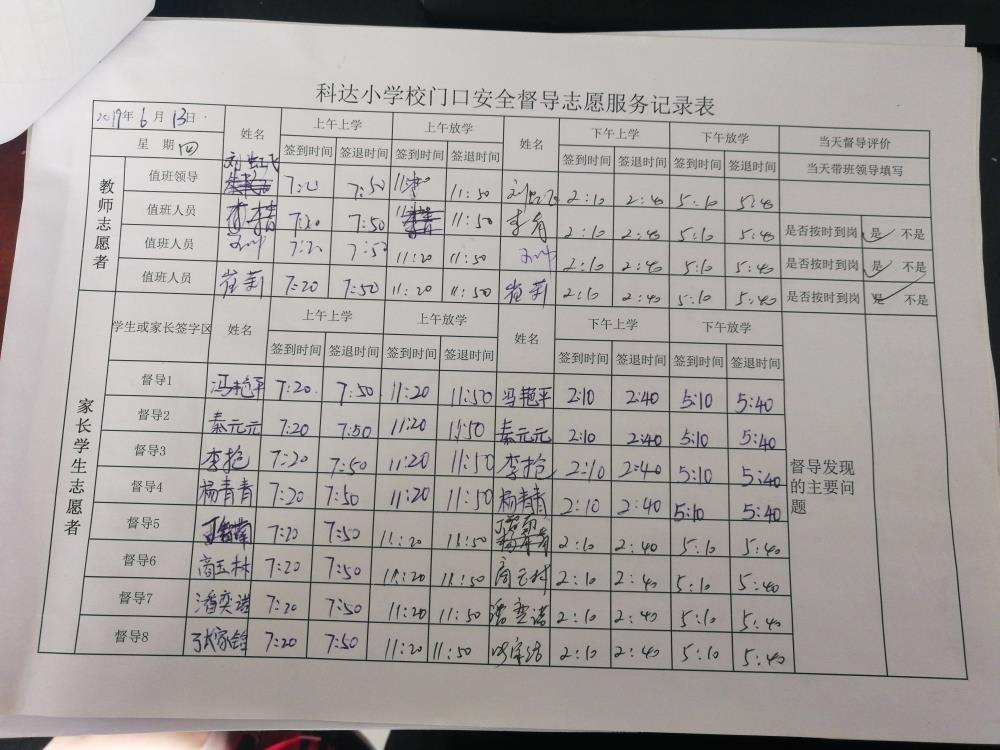 科达小学校门口安全督导志愿服务记录表
2019年 6月 13日
星 期 四
姓名 上午上学 上午放学 姓名 下午上学 下午放学 当天督导评价
签到时间 签退时间 签到时间 签退时间 签到时间 签退时间 签到时间 签退时间 当天带班领导填写
教师志愿者
值班领导 7:50 11:50 2:10 2:40 5:10 5:40
值班人员 7:20 7:50 11:50 2:10 2:40 5:10 5:40 是否按时到岗 是 不是
值班人员 7:20 7:50 11:20 11:50 2:10 2:40 5:10 5:40 是否按时到岗 是 不是
值班人员 崔莉 7:20 7:50 11:20 11:50 崔莉 2:10 2:40 5:10 5:40 是否按时到岗 是 不是
家长学生志愿者
学生或家长签字区 姓名 上午上学 上午放学 姓名 下午上学 下午放学
签到时间 签退时间 签到时间 签退时间 签到时间 签退时间 签到时间 签退时间
督导1 冯艳平 7:20 7:50 11:20 11:50 冯艳平 2:10 2:40 5:10 5:40
督导2 秦元元 7:20 7:50 11:20 11:50 秦元元 2:10 2:40 5:10 5:40
督导3 李抢 7:20 7:50 11:20 11:50 李抢 2:10 2:40 5:10 5:40
督导4 杨青青 7:20 7:50 11:20 11:50 杨青青 2:10 2:40 5:10 5:40
督导5 7:20 7:50 11:20 11:50 2:10 2:40 5:10 5:40
督导6 高玉林 7:20 7:50 11:20 11:50 高玉林 2:10 2:40 5:10 5:40
督导7 潘奕诺 7:20 7:50 11:20 11:50 潘奕诺 2:10 2:40 5:10 5:40
督导8 7:20 7:50 11:20 11:50 2:10 2:40 5:10 5:40
督导发现
的主要问
题